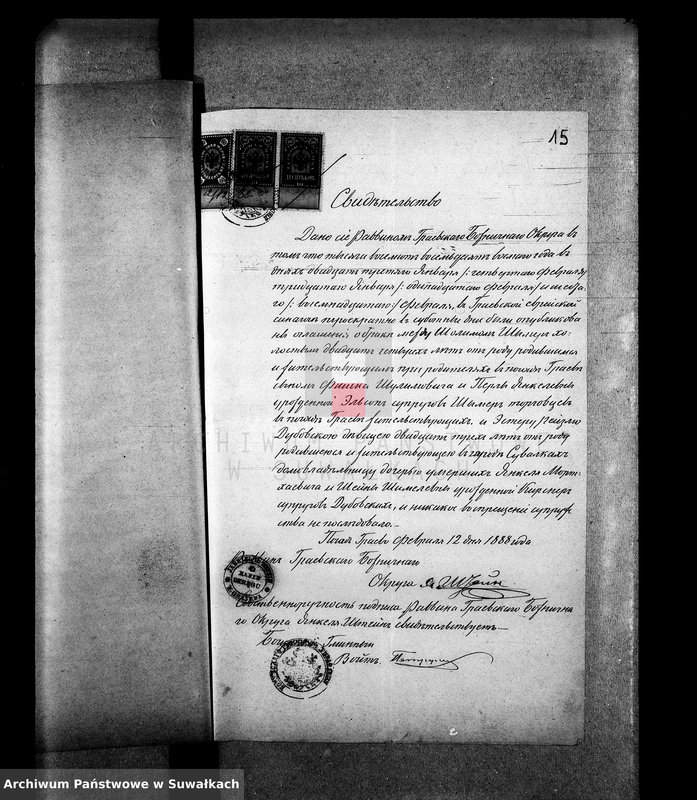 15
Свидѣтельство
Дано сіе Раввиномъ Граевскаго Божничнаго Округа въ
томъ что тысяча восемьсотъ восемьдесятъ восьмаго года въ
дняхъ двадцать третьяго Января /: четвертаго февраля/
тридцатаго Января /: одинадцатаго февраля/ и
го /: восемнадцатаго/ февраля, въ Граевской еврейской
синагогѣ троекратно въ субботніе дни были опубликова
ны оглашенія о бракѣ между Шолимомъ Шлямеръ хо-
лостымъ двадцать четырехъ лѣтъ отъ роду родившимся
и жительствующимъ при родителяхъ въ посадѣ Граевѣ
сыномъ Шулимовича и Перлы Янкелевны
урожденной супруговъ Шлямеръ торговцевъ
въ посадѣ Граевѣ жительствующихъ, и Эстерою
Дубовскою дѣвицею двадцать трехъ лѣтъ отъ роду
родившеюся и жительствующею въ городѣ Сувалкахъ
домовладѣлицею дочерью умершихъ Янкеля Морт-
хаевича и Шейны Шмелевны урожденной
супруговъ Дубовскихъ, и никакое воспрещеніе супруже
ства не послѣдовало.
Посадъ Граево Февраля 12 дня 1888 года
Раввинъ Граевскаго Божничнаго
Округа Я Штейнъ
Собственноручность подписи Раввина Граевскаго Божнична
го Округа Янкеля Штейнъ свидѣтельствуетъ
Гминный
Войтъ
Archiwum Państwowe w Suwałkach